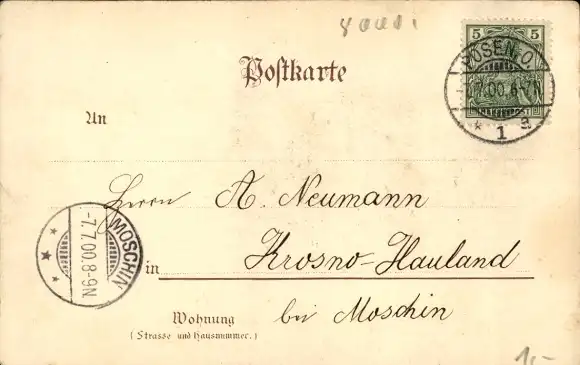 5 5
POSEN.O.
7.00.6-7N
* 1 a
Postkarte
An
Herrn A. Neumann
MOSCHIN
-7.7.00.8-9N
in Krosno-Hauland
Wohnung bei Moschin
(Strasse und Hausnummer.)
1,-